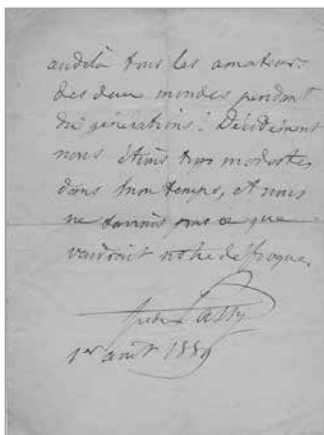 audelà tous les amateurs
des deux mondes pendant
dix générations! Décidément
nous étions trop modestes
dans mon temps, et nous
ne savions pas ce que
vaudrait notre défroque.
1er août 1889